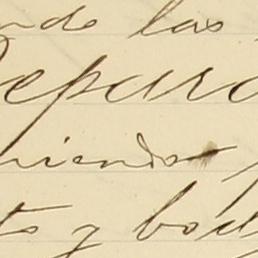 ndo las
separa
niendo
to y bod